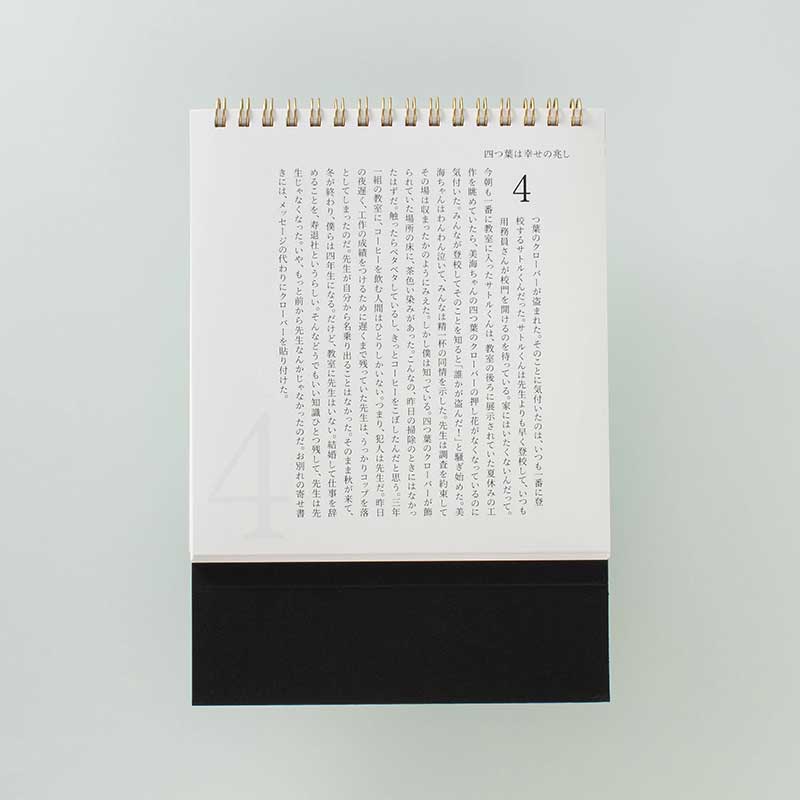 四つ葉は幸せの兆し
4
つ葉のクローバーが盗まれた。そのことに気付いたのは、いつも一番に登
校するサトルくんだった。サトルくんは先生よりも早く登校して、いつも
用務員さんが校門を開けるのを待っている。家にはいたくないんだって。
今朝も一番に教室に入ったサトルくんは、教室の後ろに展示されていた夏休みの工
作を眺めていたら、美海ちゃんの四つ葉のクローバーの押し花がなくなっているのに
気付いた。みんなが登校してそのことを知ると「誰かが盗んだ！」と騒ぎ始めた。美
海ちゃんはわんわん泣いて、みんなは精一杯の同情を示した。先生は調査を約束して
その場は収まったかのようにみえた。しかし僕は知っている。四つ葉のクローバーが飾
られていた場所の床に、茶色い染みがあった。こんなの、昨日の掃除のときにはなかっ
たはずだ。触ったらベタベタしているし、きっとコーヒーをこぼしたんだと思う。三年
一組の教室に、コーヒーを飲む人間はひとりしかいない。つまり、犯人は先生だ。昨日
の夜遅く、工作の成績をつけるために遅くまで残っていた先生は、うっかりコップを落
としてしまったのだ。先生が自分から名乗り出ることはなかった。そのまま秋が来て、
冬が終わり、僕らは四年生になる。だけど、教室に先生はいない。結婚して仕事を辞
めることを、寿退社というらしい。そんなどうでもいい知識ひとつ残して、先生は先
生じゃなくなった。いや、もっと前から先生なんかじゃなかったのだ。お別れの寄せ書
きには、メッセージの代わりにクローバーを貼り付けた。
4